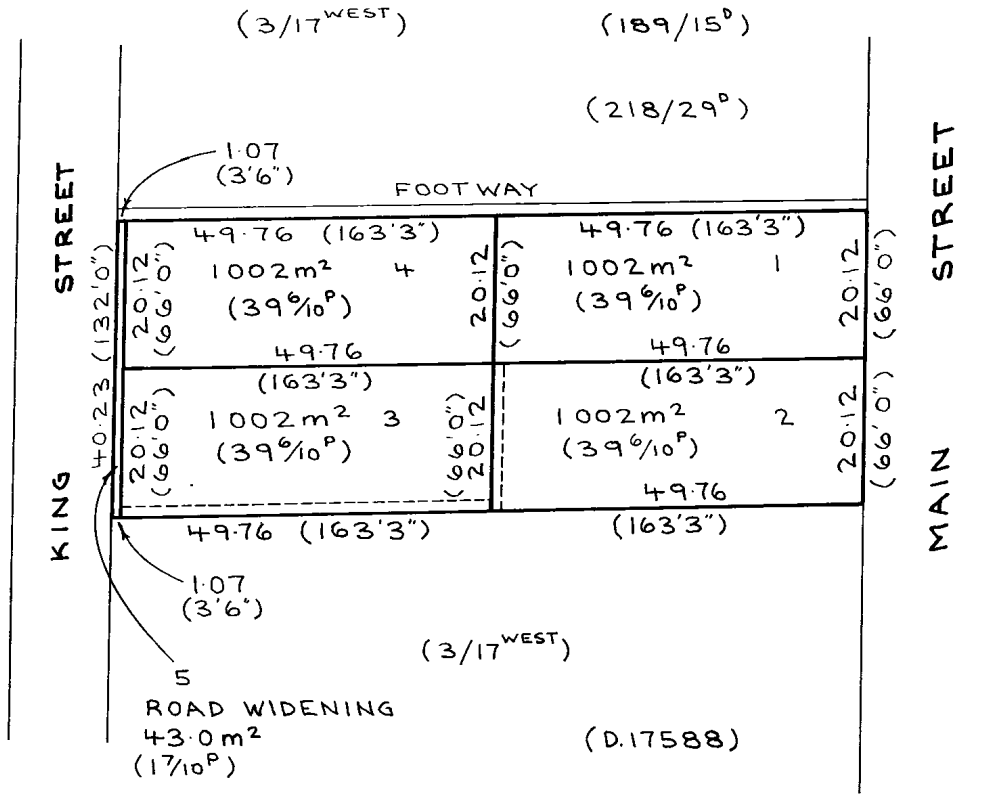 (3/17 WEST)
(189/15 D)
(218/29 D)
1·07
(3'6")
FOOTWAY
KING STREET
MAIN STREET
40·23 (132'0")
49·76 (163'3")
20·12
(66'0")
1002m² 4
(39 6/10 P)
20·12
(66'0")
49·76
(163'3")
49·76 (163'3")
1002m² 1
(39 6/10 P)
20·12
(66'0")
49·76
(163'3")
20·12
(66'0")
1002m² 3
(39 6/10 P)
(66'0")
20·12
49·76 (163'3")
1002m² 2
(39 6/10 P)
20·12
(66'0")
49·76
(163'3")
1·07
(3'6")
5
ROAD WIDENING
43·0m²
(1 7/10 P)
(3/17 WEST)
(D.17588)